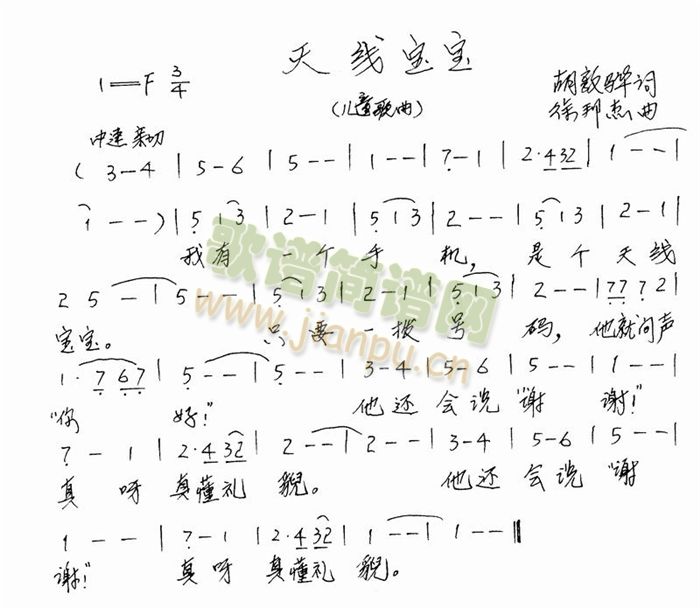 天线宝宝
1=F 3/4
(儿童歌曲)
胡敦骅词
徐邦杰曲
中速 亲切
( 3-4 | 5-6 | 5-- | 1-- | 7-1 | 2·432 | 1-- |
1--) | 5 13 | 2-1 | 5 13 | 2-- | 5 13 | 2-1 |
我有一个手机，是个天线
2 5 - | 5-- | 5 13 | 2-1 | 5 13 | 2-- | 77 7 2 |
宝宝。只要一拨号码，他就问声
1· 7 67 | 5-- | 5-- | 3-4 | 5-6 | 5-- | 1-- |
“你好！”他还会说“谢谢！”
7-1 | 2·432 | 2-- | 2-- | 3-4 | 5-6 | 5-- |
真呀真懂礼貌。他还会说“谢
1-- | 7-1 | 2·432 | 1-- | 1-- ‖
谢！”真呀真懂礼貌。
歌谱简谱网
www.jianpu.cn